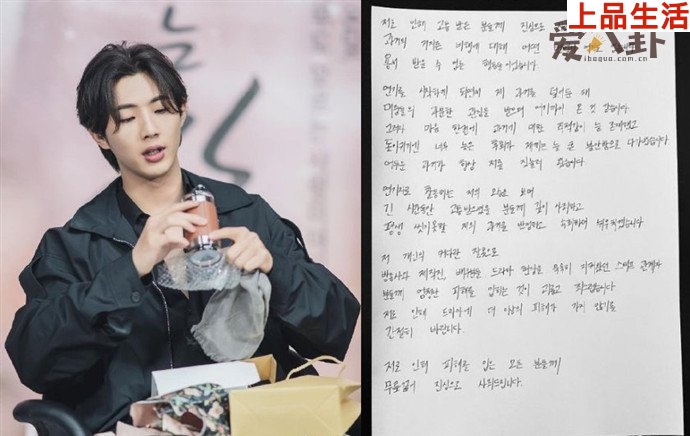 는
강
上品生活
爱八卦
ibagua.com.cn
저로 인해 고통 받은 분들께 진심으로
과거에 저지른 비행에 대해 어떤
용서 받을 수 없는 행동들이었습니다.
연기를 시작하게 되면서 제 과거를 덮어둔 채
대중들의 과분한 관심을 받으며 여기까지 온 것 같습니다.
그러나 마음 한편에 과거에 대한 죄책감이 늘 존재했고
돌이키기엔 너무 늦은 후회가 저에게는 늘 큰 불안함으로 다가왔습니다.
어두운 과거가 항상 저를 짓눌러 왔습니다.
연기자로 활동하는 제 모습을 보며
긴 시간동안 고통받으셨을 분들께 깊이 속죄하고
평생 씻지못할 저의 과거를 반성하고 뉘우치겠습니다
저 개인의 커다란 잘못으로
방송사와 제작진, 배우들, 드라마 현장을 묵묵히 지켜왔던 스태프 관계자
분들께 엄청난 피해를 입히는 것이 괴롭고 죄스럽습니다.
저로 인해 드라마에 더 이상의 피해가 가지 않기를
간절히 바랍니다.
저로 인해 피해를 입은 모든 분들께
무릎꿇어 진심으로 사죄드립니다.